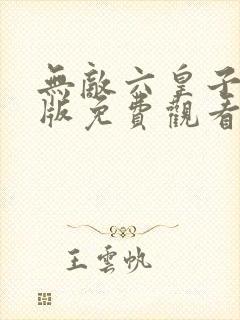 無敵六皇子
版免費觀看
王雲帆